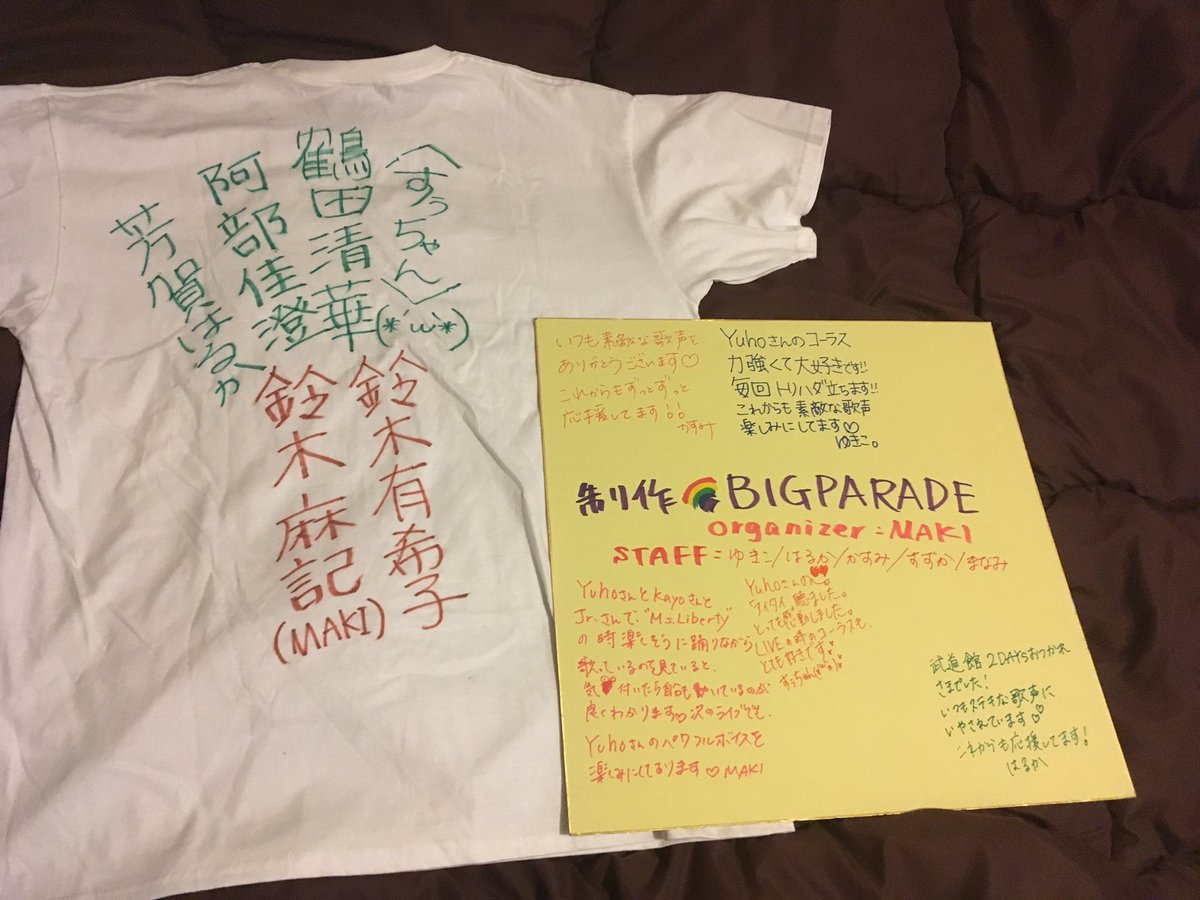 (すぅちゃん)
(*´ω`*)
鶴田清華
阿部佳澄
芳賀はるか
鈴木有希子
鈴木麻記
(MAKI)
いつも素敵な歌声を
ありがとうございます♡
これからもずっとずっと
応援してます!!
かすみ
Yuhoさんのコーラス
力強くて大好きです!!
毎回トリハダ立ちます!!
これからも素敵な歌声
楽しみにしてます♡
ゆきこ。
制作 BIGPARADE
organizer=MAKI
STAFF=ゆきこ/はるか/かすみ/すずか/まなみ
YuhoさんとKayoさんと
Jr.さんで、"Ms.Liberty"
の時楽しそうに踊りながら
歌っているのを見ていると、
気♥付いたら自分も動いているのが
良くわかります♡次のライブでも、
Yuhoさんのパワフルボイスを
楽しみにしております♡MAKI
Yuhoさんの
聴ました。
とっても感動しました。
LIVEの時のコーラスも、
とても好きです
武道館 2DAYsおつかれ
さまでした!
いつもステキな歌声に
いやされています♡
これからも応援してます!
はるか